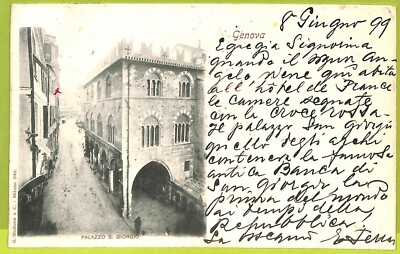 8 Giugno 99
Genova
Egregia Signorina
quando il signor An-
gelo, viene qui abita
all' hôtel de France
le camere segnate
con la croce rossa
Il palazzo San Giorgio
quello degli archi
conteneva la famosa
antica Banca di
San Giorgio, la
prima del mondo
ai tempi della
Repubblica
La
PALAZZO S. GIORGIO